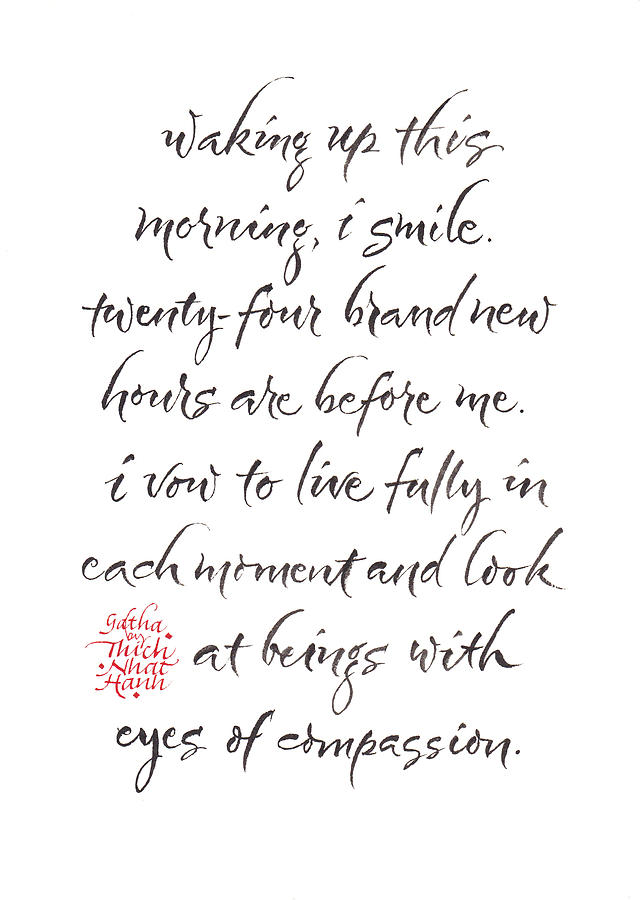 waking up this
morning, i smile.
twenty-four brand new
hours are before me.
i vow to live fully in
each moment and look
at beings with
eyes of compassion.
Gatha
by
Thich
Nhat
Hanh